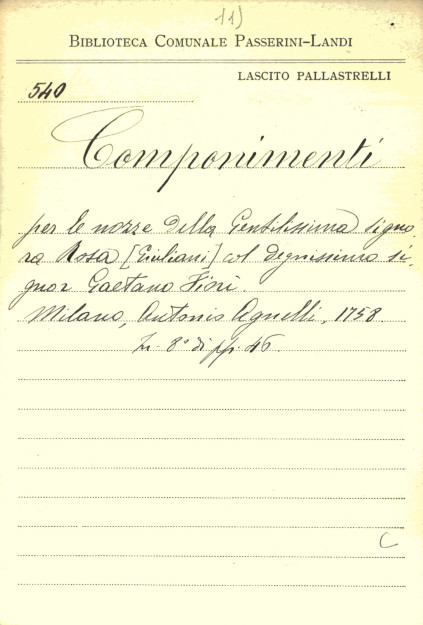 11)
BIBLIOTECA COMUNALE PASSERINI-LANDI
LASCITO PALLASTRELLI
540
Componimenti
per le nozze della Gentilissima signo
ra Rosa [Giuliani] col degnissimo si,
gnor Gaetano Fiori.
Milano, Antonio Agnelli, 1758.
In 8° di pp. 46.
C